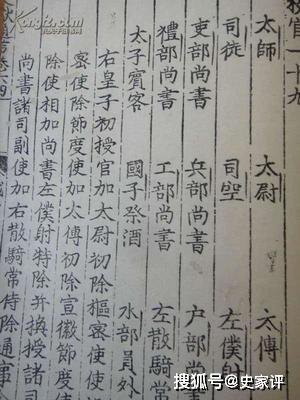 官一十九
太師 太尉 太傅
司徒 司空 左僕
吏部尚書 兵部尚書 户部尚書
禮部尚書 工部尚書 左散騎常
太子賓客 國子祭酒 水部員外
右皇子初授官加太尉初除樞密使使
密使除節度使加太傅初除宣徽節度使
除使相加尚書左僕射特除并換授諸司
尚書諸司副使加右散騎常侍除通事
搜狐号@史家评